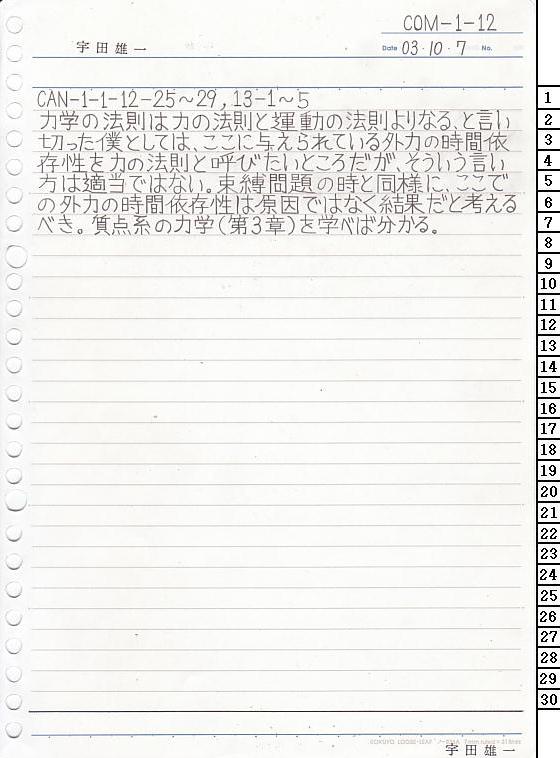 COM-1-12
宇田雄一
Date 03・10・7 No.
CAN-1-1-12-25～29, 13-1～5
力学の法則は力の法則と運動の法則よりなる、と言い
切った僕としては、ここに与えられている外力の時間依
存性を力の法則と呼びたいところだが、そういう言い
方は適当ではない。束縛問題の時と同様に、ここで
の外力の時間依存性は原因ではなく結果だと考える
べき。質点系の力学(第3章)を学べば分かる。
1
2
3
4
5
6
7
8
9
10
11
12
13
14
15
16
17
18
19
20
21
22
23
24
25
26
27
28
29
30
KOKUYO LOOSE-LEAF
宇田雄一